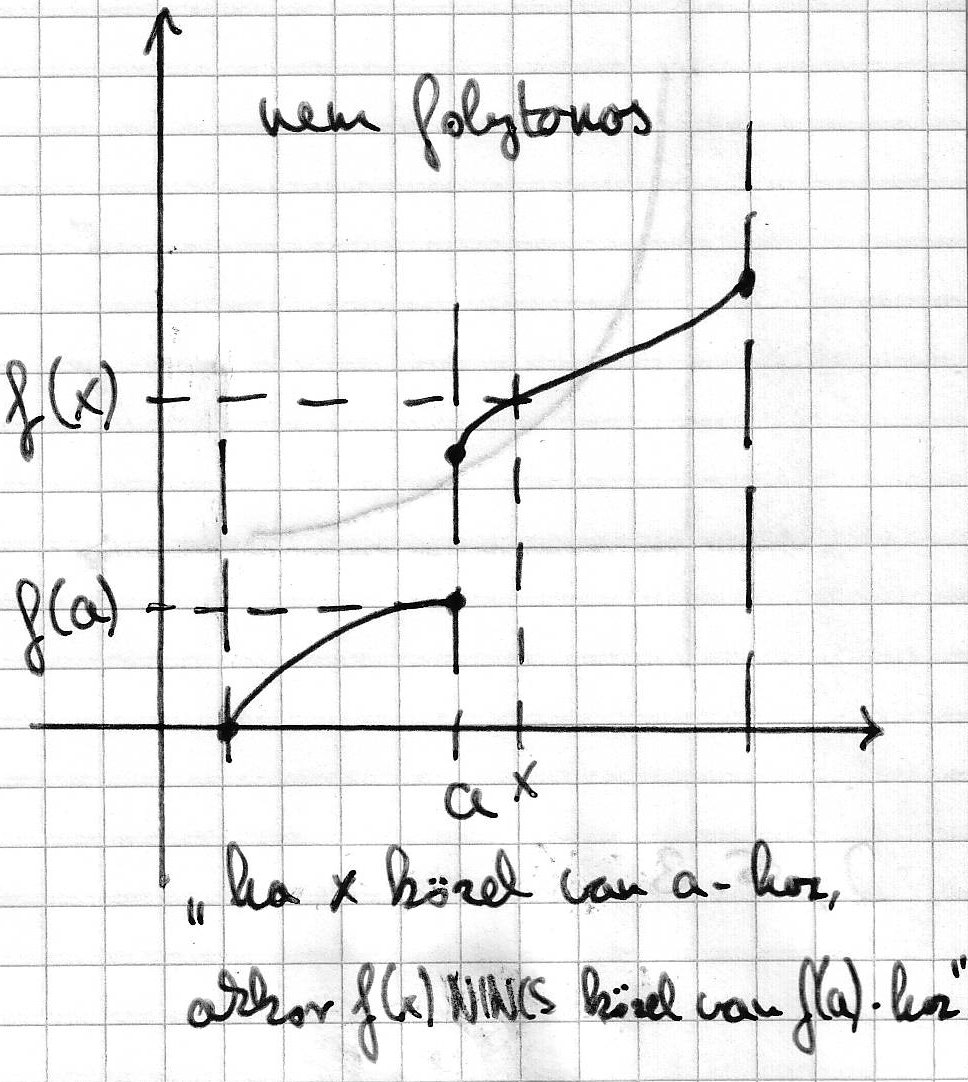 nem folytonos
f(x)
f(a)
a x
„ha x közel van a-hoz,
akkor f(x) NINCS közel van f(a)-hoz"